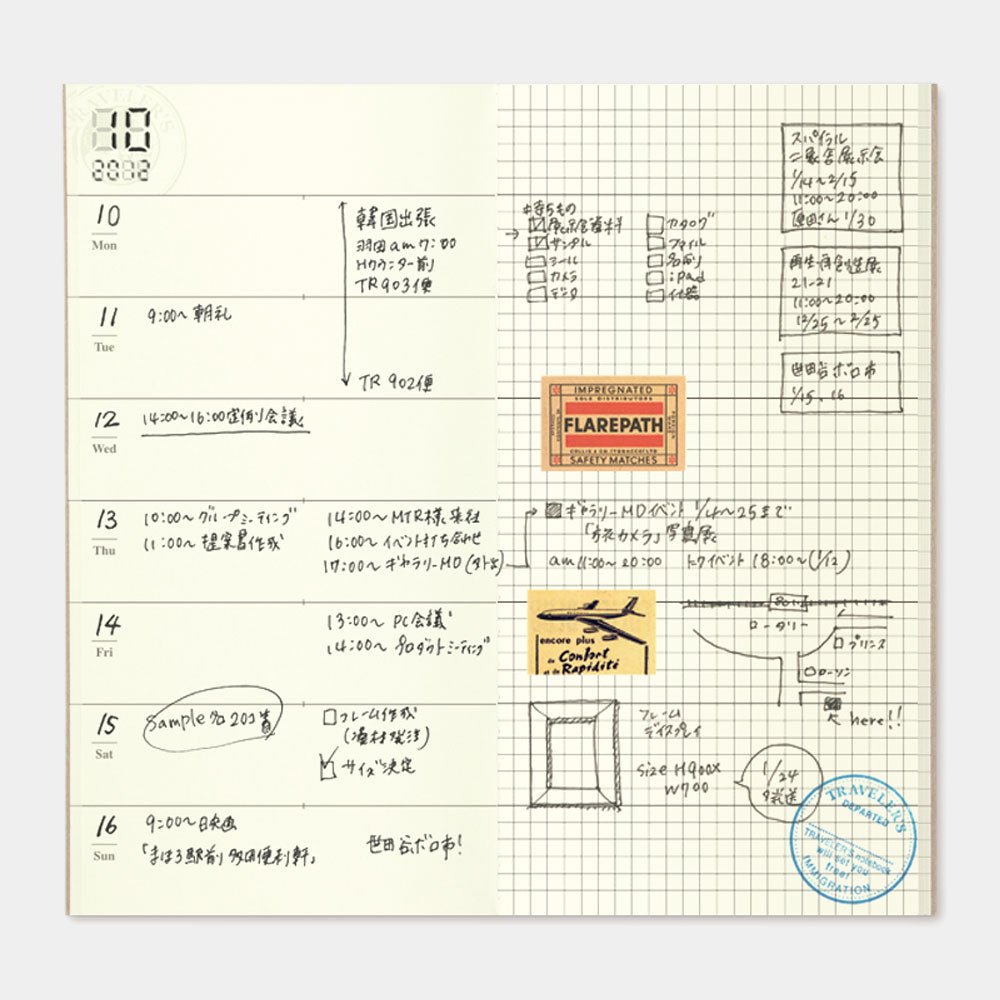 TRAVELER'S
10
2012
10
Mon
韓国出張
羽田am7:00
Hカウンター前
TR903便
11
Tue
9:00〜朝礼
TR 902便
12
Wed
14:00〜16:00定例会議
13
Thu
10:00〜グループミーティング
11:00〜提案書作成
14:00〜MTR様来社
16:00〜イベント打ち合わせ
17:00〜ギャラリーMD
14
Fri
13:00〜PC会議
14:00〜プロダクトミーティング
15
Sat
Sample 20コ
フレーム作成
サイズ決定
16
Sun
9:00〜映画
「まほろ駅前多田便利軒」
世田谷ボロ市!
持ちもの
展示会資料
サンプル
シール
カメラ
データ
カタログ
ファイル
名刺
iPad
什器
スパイラル
二象舎展示会
1/14〜2/15
11:00〜20:00
原田さん 1/30
再生・再創造展
21-21
11:00〜20:00
12/25〜2/25
世田谷ボロ市
1/15.16
IMPREGNATED
SOLE DISTRIBUTORS
FLAREPATH
COLLIS & CO. (TOBACCO) LTD
SAFETY MATCHES
ギャラリーMDイベント 1/4〜25まで
「旅カメラ」写真展
am11:00〜20:00 トークイベント18:00〜(1/12)
encore plus
de Confort
et de Rapidité
ロータリー
プリンス
ローソン
here!!
フレーム
ディスプレイ
size H900×
W700
1/24
発送
TRAVELER'S
DEPARTED
TRAVELER'S notebook
will set you
free!
IMMIGRATION